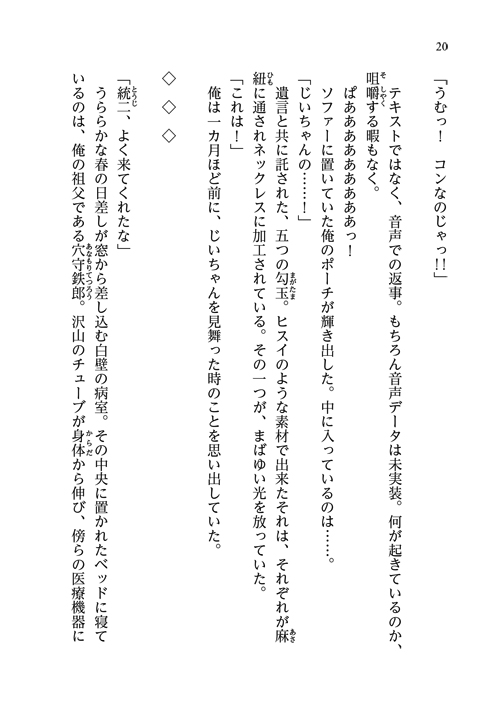 20
「うむっ！　コンなのじゃっ!!」
　テキストではなく、音声での返事。もちろん音声データは未実装。何が起きているのか、
咀嚼する暇もなく。
　ぱあああああああああっ！
　ソファーに置いていた俺のポーチが輝き出した。中に入っているのは……。
「じいちゃんの……！」
　遺言と共に託された、五つの勾玉。ヒスイのような素材で出来たそれは、それぞれが麻
紐に通されネックレスに加工されている。その一つが、まばゆい光を放っていた。
「これは！」
　俺は一カ月ほど前に、じいちゃんを見舞った時のことを思い出していた。
◇　◇　◇
「統二、よく来てくれたな」
　うららかな春の日差しが窓から差し込む白壁の病室。その中央に置かれたベッドに寝て
いるのは、俺の祖父である穴守鉄郎。沢山のチューブが身体から伸び、傍らの医療機器に